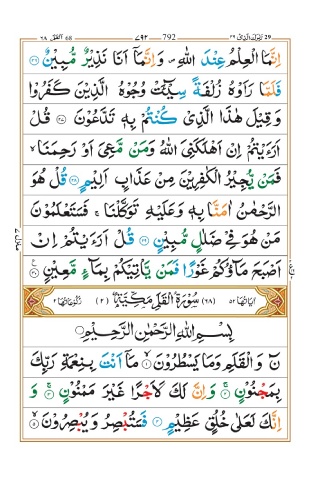 تَبٰرَكَ الَّذِىْ ٢٩ 29 792 ٧٩٢ 68 اَلْقَلَم ٦٨
اِنَّمَا الْعِلْمُ عِنْدَ اللّٰهِ ۪ وَاِنَّمَاۤ اَنَا نَذِيْرٌ مُّبِيْنٌ ﴿٢٦﴾
فَلَمَّا رَاَوْهُ زُلْفَةً سِيْٓئَتْ وُجُوْهُ الَّذِيْنَ كَفَرُوْا
وَقِيْلَ هٰذَا الَّذِىْ كُنْتُمْ بِهٖ تَدَّعُوْنَ ﴿٢٧﴾ قُلْ
اَرَءَيْتُمْ اِنْ اَهْلَكَنِىَ اللّٰهُ وَمَنْ مَّعِىَ اَوْ رَحِمَنَا ۙ
فَمَنْ يُّجِيْرُ الْكٰفِرِيْنَ مِنْ عَذَابٍ اَلِيْمٍ ﴿٢٨﴾ قُلْ هُوَ
الرَّحْمٰنُ اٰمَنَّا بِهٖ وَعَلَيْهِ تَوَكَّلْنَا ۚ فَسَتَعْلَمُوْنَ
مَنْ هُوَ فِىْ ضَلٰلٍ مُّبِيْنٍ ﴿٢٩﴾ قُلْ اَرَءَيْتُمْ اِنْ
اَصْبَحَ مَآؤُكُمْ غَوْرًا فَمَنْ يَّاْتِيْكُمْ بِمَآءٍ مَّعِيْنٍ ﴿٣٠﴾
اٰيَاتُهَا ٥٢ (٦٨) سُوْرَةُ الْقَلَمِ مَكِّيَّةٌ (٢) رُكُوْعَاتُهَا ٢
بِسْمِ اللّٰهِ الرَّحْمٰنِ الرَّحِيْمِ
نٓ وَالْقَلَمِ وَمَا يَسْطُرُوْنَ ﴿١﴾ مَاۤ اَنْتَ بِنِعْمَةِ رَبِّكَ
بِمَجْنُوْنٍ ﴿٢﴾ وَاِنَّ لَكَ لَاَجْرًا غَيْرَ مَمْنُوْنٍ ﴿٣﴾ وَ
اِنَّكَ لَعَلٰى خُلُقٍ عَظِيْمٍ ﴿٤﴾ فَسَتُبْصِرُ وَيُبْصِرُوْنَ ﴿٥﴾